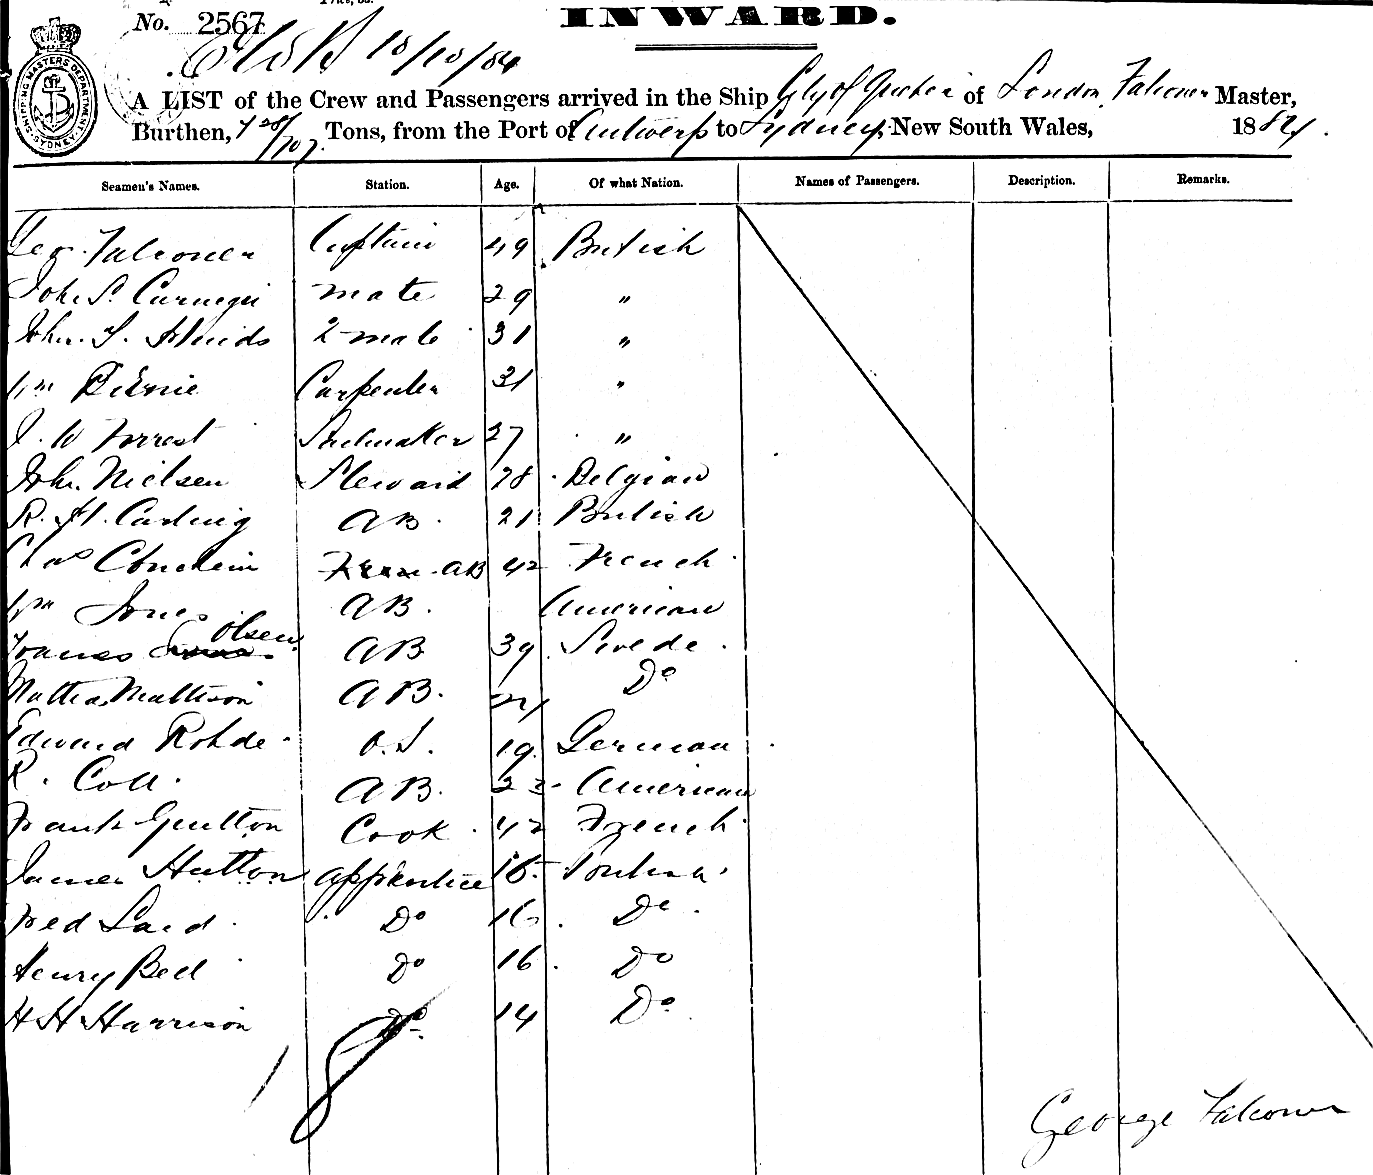 No. 2567
INWARD.
10/10/84
SHIPPING MASTERS DEPARTMENT SYDNEY
A LIST of the Crew and Passengers arrived in the Ship City of of London, Falconer Master,
Burthen, 728/707 Tons, from the Port of Antwerp to Sydney, New South Wales, 1884.
Seamen's Names. Station. Age. Of what Nation. Names of Passengers. Description. Remarks.
Geo. Falconer Captain 49 British
John S. Carnegie mate 29 "
John. 2 mate 31 "
Wm Birnie Carpenter 31 "
J. W Forrest Sailmaker 27 "
John Nielsen Steward 28 Belgian
R. H. 21 British
Chas AB 42 French
Wm Jones AB. American
Olsen AB 39 Swede
Mattias Mattison AB. Do
Edward Rohde O.S. 19 German
R. Coll AB. American
Frank Cook 42 French
James Hutton apprentice 16 British
Fred Laird Do 16 Do
Henry Bell Do 16 Do
H H Harrison Do 14 Do
18
George Falconer